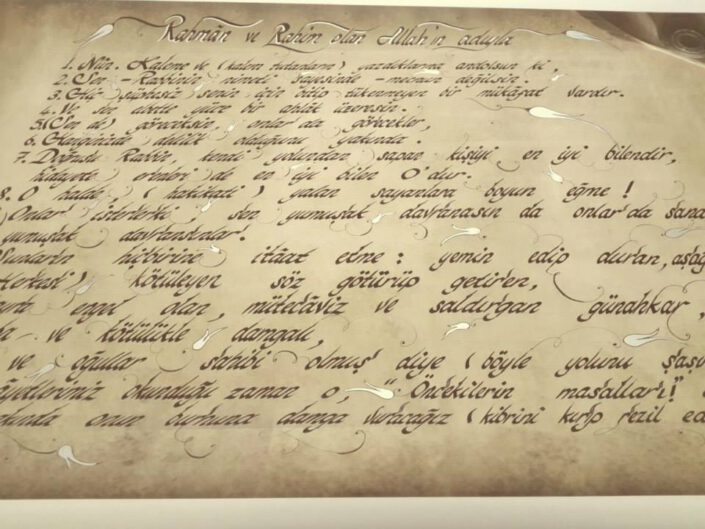 Rahmân ve Rahîm olan Allah'ın adıyla
1. Nûn. Kaleme ve (kalem tutanların) yazdıklarına andolsun ki,
2. Sen - Rabbinin nimeti sayesinde - mecnun değilsin.
3. Hiç şüphesiz senin için bitip tükenmeyen bir mükâfat vardır.
4. Ve sen elbette yüce bir ahlâk üzeresin.
5. (Sen de) göreceksin, onlar da görecekler,
6. Hanginizde delilik olduğunu yakında.
7. Doğrusu Rabbin, kendi yolundan sapan kişiyi en iyi bilendir,
hidayete erenleri de en iyi bilen O'dur.
8. O halde, (hakikati) yalan sayanlara boyun eğme!
Onlar isterlerki, sen yumuşak davranasın da onlar da sana
yumuşak davransınlar.
Bunların hiçbirine itâat etme: yemin edip duran, aşağı
Herkesi) kötüleyen söz götürüp getiren,
engel olan, mütecâviz ve saldırgan günahkar,
ve kötülükle damgalı,
ve oğullar sahibi olmuş diye (böyle yolunu şaşır
âyetlerimiz okunduğu zaman o, "Öncekilerin masalları!"
onun burnuna damga vuracağız (kibrini kırıp rezil ede